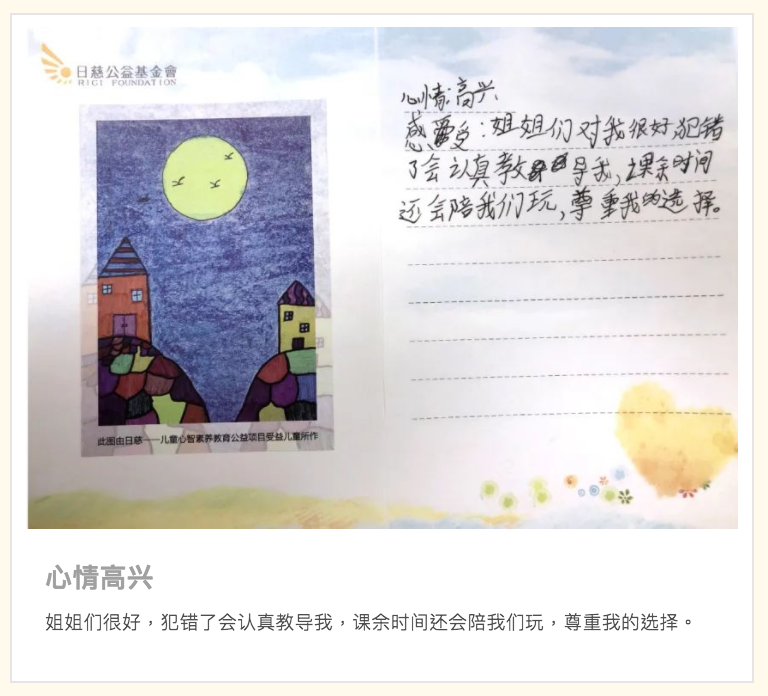 日慈公益基金會
RICI FOUNDATION
此图由日慈——儿童心智素养教育公益项目受益儿童所作
心情:高兴
感受:姐姐们对我很好,犯错
了会认真教导我,课余时间
还会陪我们玩,尊重我的选择。
心情高兴
姐姐们很好，犯错了会认真教导我，课余时间还会陪我们玩，尊重我的选择。